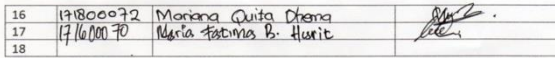 16 171800072 Mariana Quita Dhema
17 171600070 Maria Fatima B. Hurit
18